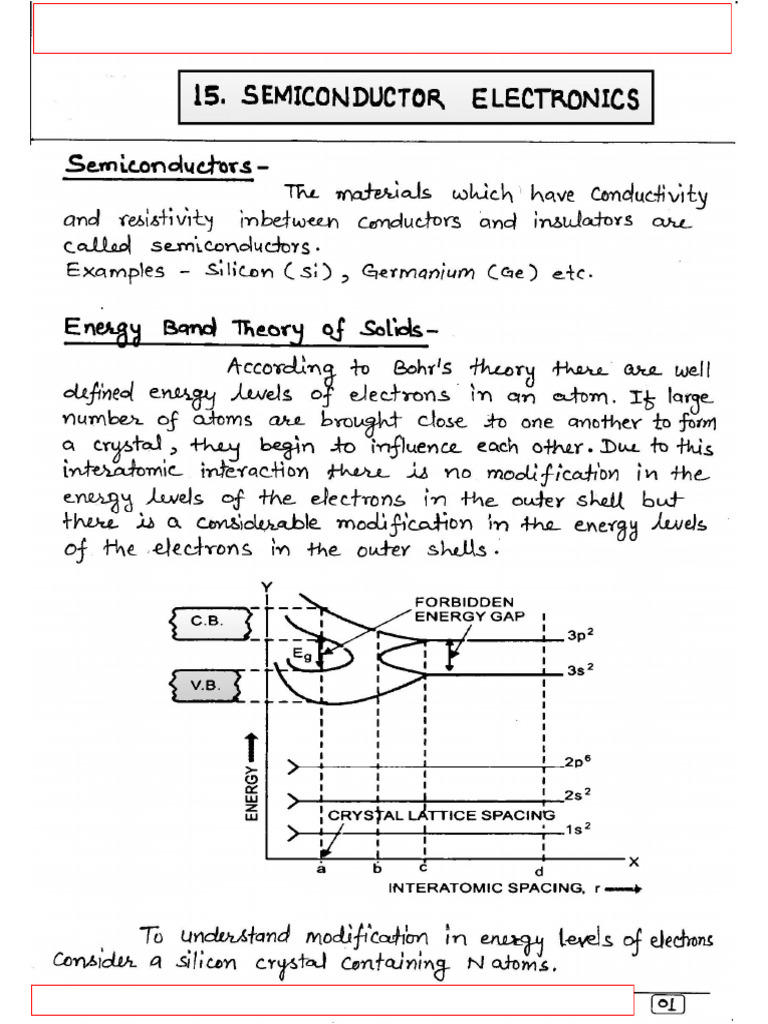 15. SEMICONDUCTOR ELECTRONICS
Semiconductors-
The materials which have conductivity
and resistivity inbetween conductors and insulators are
called semiconductors.
Examples - Silicon (Si), Germanium (Ge) etc.
Energy Band Theory of Solids-
According to Bohr's theory there are well
defined energy levels of electrons in an atom. If large
number of atoms are brought close to one another to form
a crystal, they begin to influence each other. Due to this
interatomic interaction there is no modification in the
energy levels of the electrons in the outer shell but
there is a considerable modification in the energy levels
of the electrons in the outer shells.
Y
FORBIDDEN
ENERGY GAP
C.B.
3p²
Eg
3s²
V.B.
ENERGY
2p⁶
2s²
CRYSTAL LATTICE SPACING
1s²
X
a b c d
INTERATOMIC SPACING, r
To understand modification in energy levels of electrons
Consider a silicon crystal containing N atoms.
01